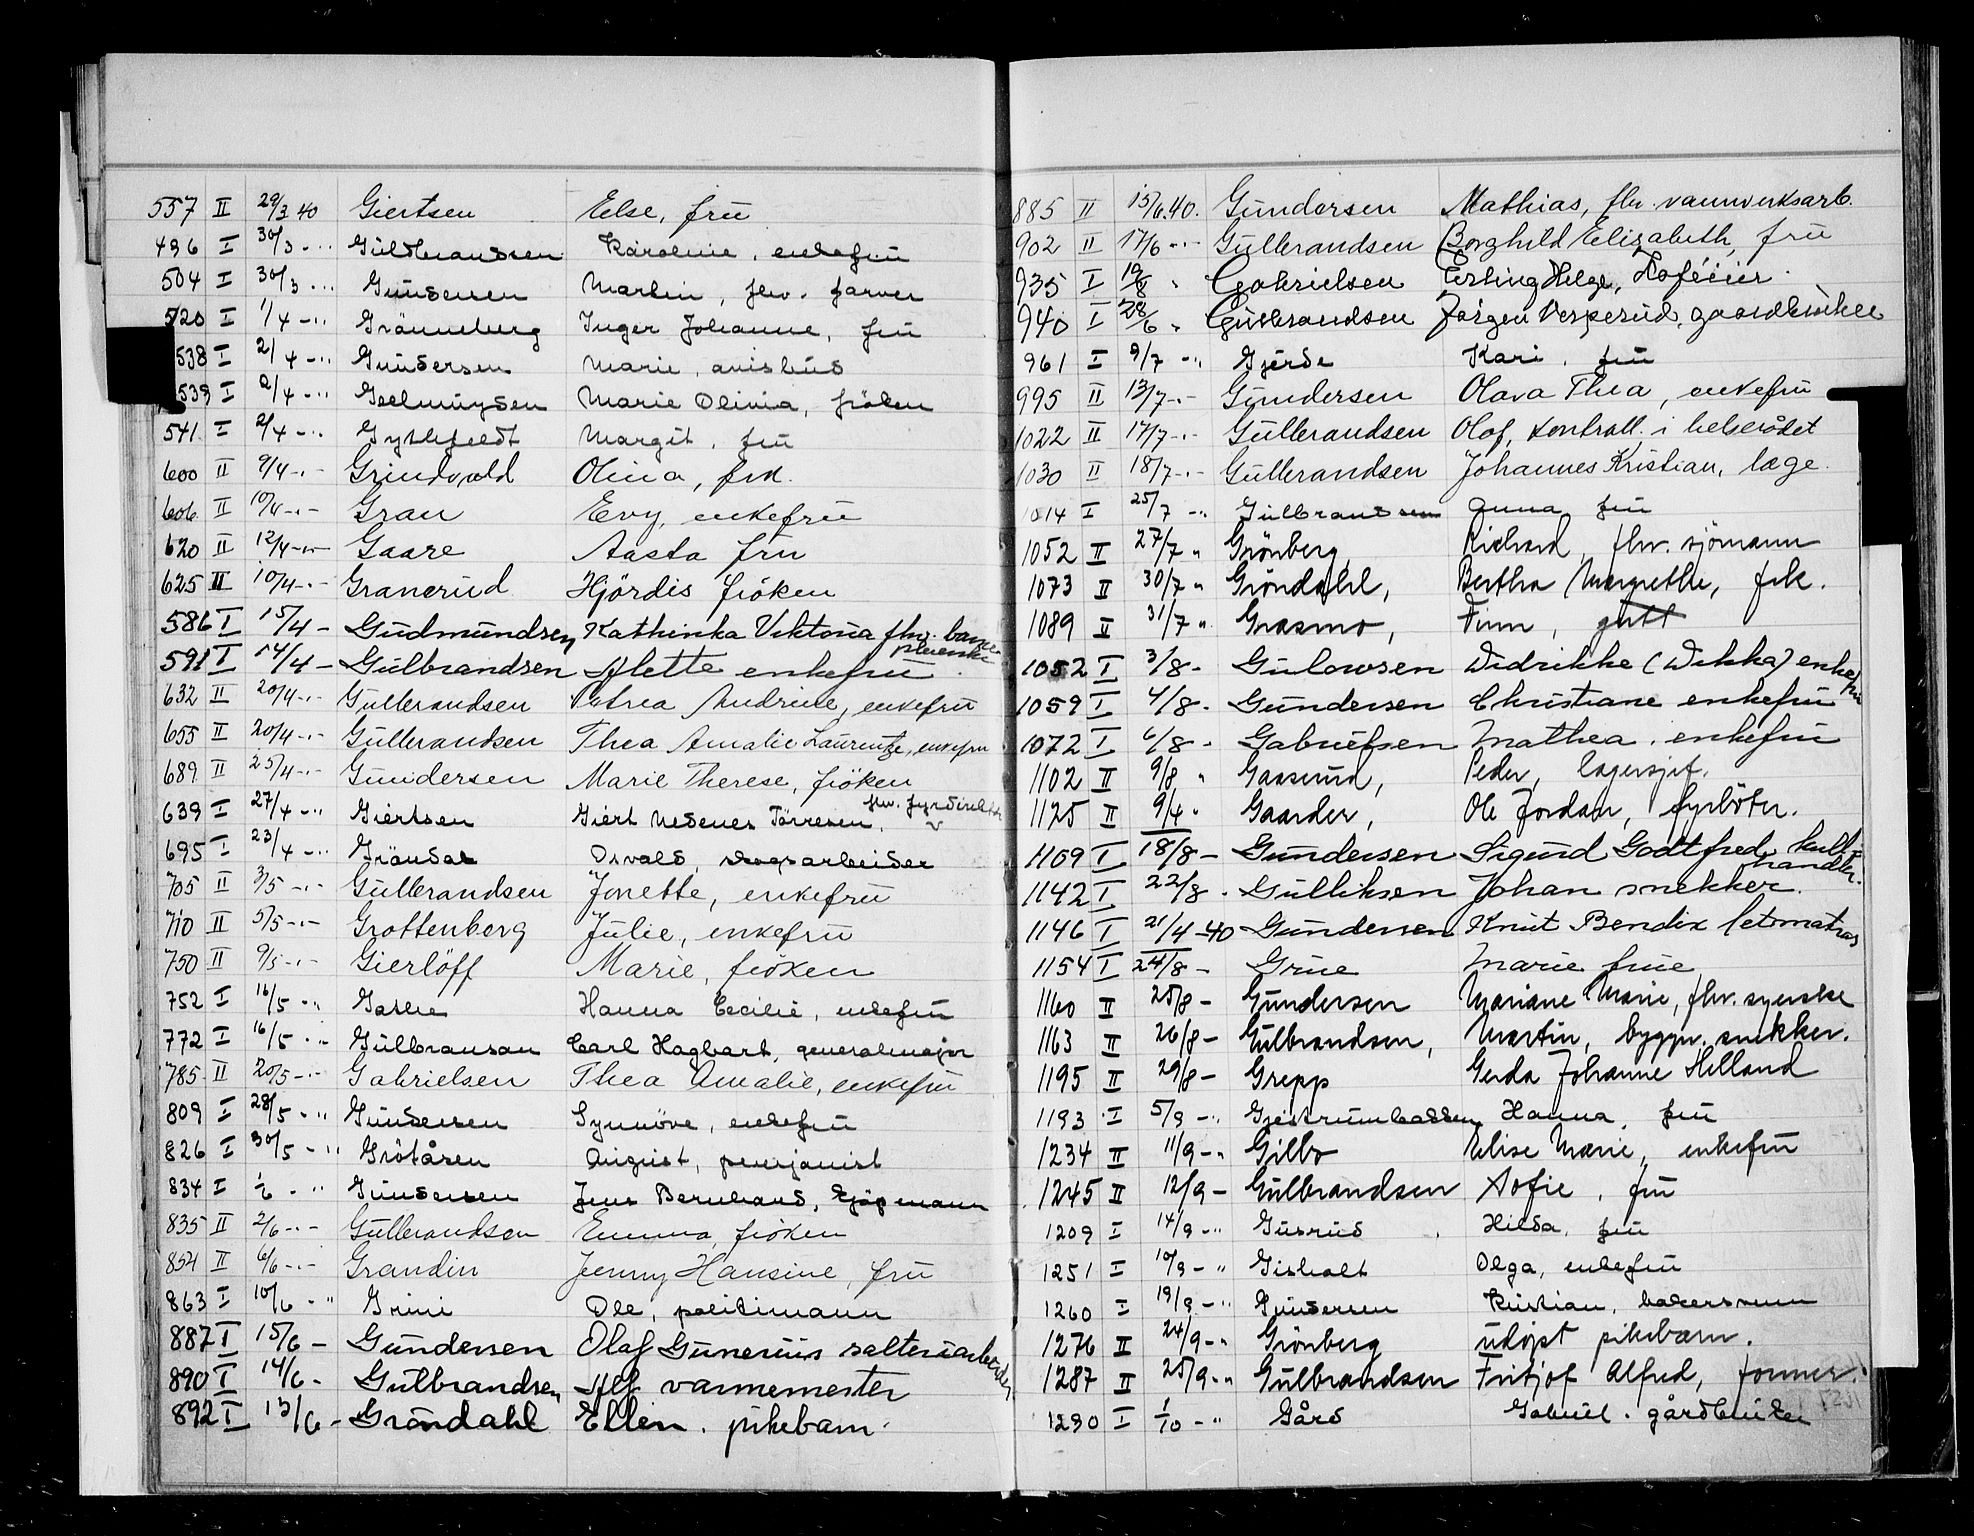 557 II 29/3 40 Giertsen Else, frü
496 I 30/3 -"- Güldbrandsen Karoline, enkefrü
504 I 30/3 -"- Gündersen Martin, fhv. farver
520 I 1/4 -"- Grönneberg Inger Johanne, frü
538 I 2/4 -"- Gündersen Marie, avisbüd
539 I 2/4 -"- Geelmüyden Marie Olivia, fröken
541 I 2/4 -"- Gyldefeldt Margit, frü
600 II 9/4 -"- Grindvold Olina, frk.
606 II 10/4 -"- Gran Evy, enkefrü
620 II 12/4 -"- Gaare Aasta frü
625 II 10/4 -"- Granerüd Hjördis fröken
586 I 15/4 - Güdmündsen Kathinka Viktoria fhv. barnepleierske
591 I 14/4 - Gülbrandsen Alette enkefrü
632 II 20/4 -"- Gülbrandsen Petrea Andrine, enkefrü
655 II 20/4 -"- Gülbrandsen Thea Amalie Laurentze, enkefrü
689 II 25/4 -"- Gündersen Marie Therese, fröken
639 I 27/4 -"- Giertsen Giert Nedenes Törresen, fhv. fyrdirektör
695 I 23/4 -"- Gröndal Osvald, skogsarbeider
705 II 3/5 -"- Gülbrandsen Jonette, enkefrü
710 II 5/5 -"- Grottenberg Jülie, enkefrü
750 II 9/5 -"- Gierlöff Marie, fröken
752 I 16/5 -"- Hanna Cecilie, enkefrü
772 I 16/5 -"- Gülbranson Carl Hagbart, generalmajor
785 II 20/5 -"- Gabrielsen Thea Amalie, enkefrü
809 I 28/5 -"- Gündersen Synnöve, enkefrü
826 I 30/5 -"- Grötåsen Aügüst, pensjonist
834 I 1/6 -"- Gündersen Jens Bernhard, kjöpmann
835 II 2/6 -"- Gülbrandsen Emma, fröken
854 II 6/6 -"- Grandin Jenny Hansine, frü
863 I 10/6 -"- Grini Ole, politimann
887 I 15/6 - Gündersen Olaf Günerius salteriarbeider
890 I 14/6 - Gülbrandsen Alf varmemester
892 I 13/6 - Gröndahl Ellen. pikebarn.
885 II 15/6.40. Gündersen Mathias, fhv. vannverksarb.
902 II 17/6 -"- Gülbrandsen Borghild Elisabeth, frü
935 I 19/6 " Gabrielsen Erling Helge,
940 I 28/6 " Gülbrandsen Jörgen Vesperüd, gaardbrüker
961 I 9/7 -"- Gjerde Kari, frü
995 II 13/7 -"- Gündersen Olava Thea, enkefrü
1022 II 17/7 -"- Gülbrandsen Olaf, kontroll. i helserådet
1030 II 18/7 -"- Gülbrandsen Johannes Kristian, læge.
1014 I 25/7 -"- Gülbrandsen Anna, frü
1052 II 27/7 " Grönberg Richard, fhv. sjömann
1073 II 30/7 " Gröndahl, Bertha Margrethe, frk.
1089 II 31/7 " Grasmo, Finn, gütt
1052 I 3/8 - Gülowsen Didrikke (Dikka) enkefrü
1059 I 4/8 - Gündersen Christiane enkefrü
1072 I 6/8 - Gabrielsen Mathea. enkefrü
1102 II 9/8 " Gaaserud, Peder, lagersjef.
1125 II 9/4 " Gaarder, Ole Jordan, fyrböter.
1109 I 18/8 - Gündersen Sigürd Godtfred kullhandler.
1142 I 22/8 - Gülliksen Johan snekker.
1146 I 21/4 - 40 Gündersen Knüt Bendix letmatros
1154 I 24/8 - Grüe Marie früe
1160 II 25/8 - Gündersen Mariane Marie, fhv. syerske
1163 II 26/8 - Gülbrandsen, Martin, byggn. snekker.
1195 II 29/8 - Grepp Gerda Johanne Helland
1193 I 5/9 -"- Gjestrumbakken Hanna, frü
1234 II 11/9 -"- Gilbo Elise Marie, enkefrü
1245 II 12/9 - Gülbrandsen Sofie, frü
1209 I 14/9 -"- Güsrüd Hilda, frü
1251 I 10/9 -"- Gisholt Olga, enkefrü
1260 I 19/9 -"- Gündersen Kristian, bakersvenn
1276 II 24/9 -"- Grönberg üdöpt pikebarn.
1287 II 25/9 -"- Gülbrandsen Fritjof Alfred, former.
1290 I 1/10 -"- Gård Gabriel. gårdbrüker